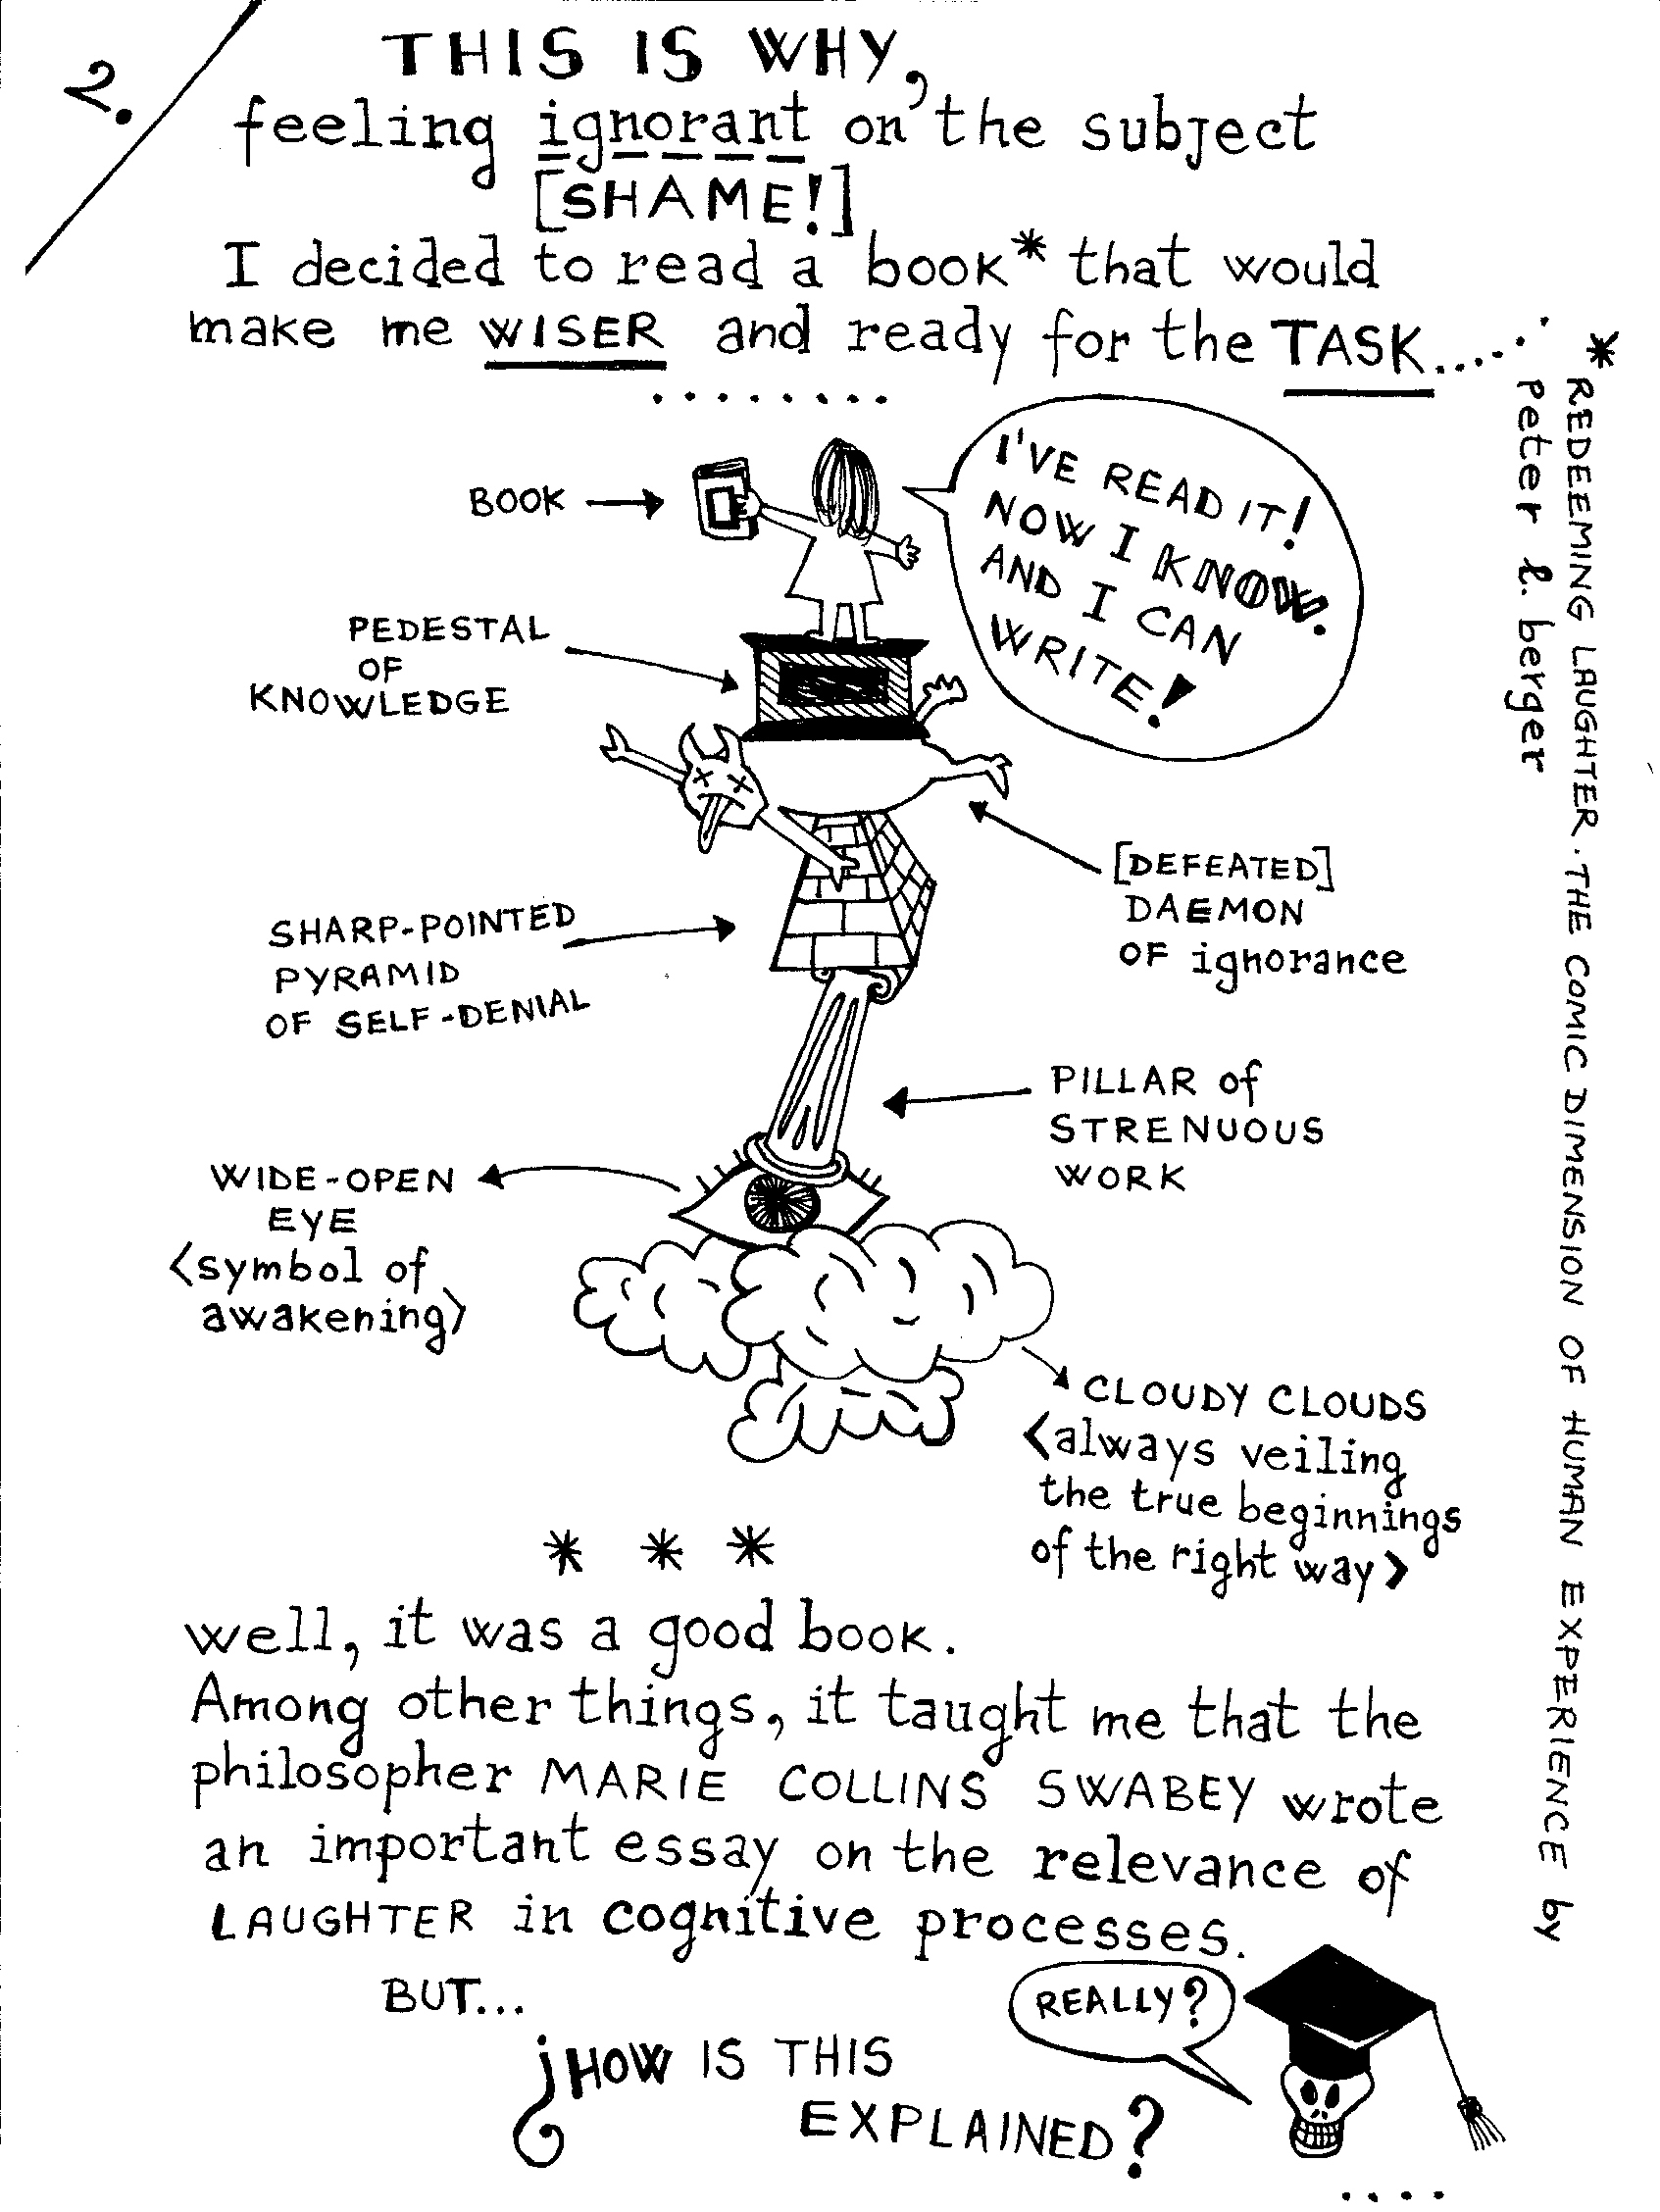 2.
THIS IS WHY,
feeling ignorant on the subject
[SHAME!]
I decided to read a book* that would
make me WISER and ready for the TASK.....
........
BOOK
I'VE READ IT!
NOW I KNOW.
AND I CAN
WRITE!
PEDESTAL
OF
KNOWLEDGE
[DEFEATED]
DAEMON
OF ignorance
SHARP-POINTED
PYRAMID
OF SELF-DENIAL
PILLAR of
STRENUOUS
WORK
WIDE-OPEN
EYE
<symbol of
awakening>
CLOUDY CLOUDS
<always veiling
the true beginnings
of the right way>
* REDEEMING LAUGHTER. THE COMIC DIMENSION OF HUMAN EXPERIENCE by
peter l. berger
* * *
well, it was a good book.
Among other things, it taught me that the
philosopher MARIE COLLINS SWABEY wrote
an important essay on the relevance of
LAUGHTER in cognitive processes.
BUT...
REALLY?
¿HOW IS THIS
EXPLAINED?
....